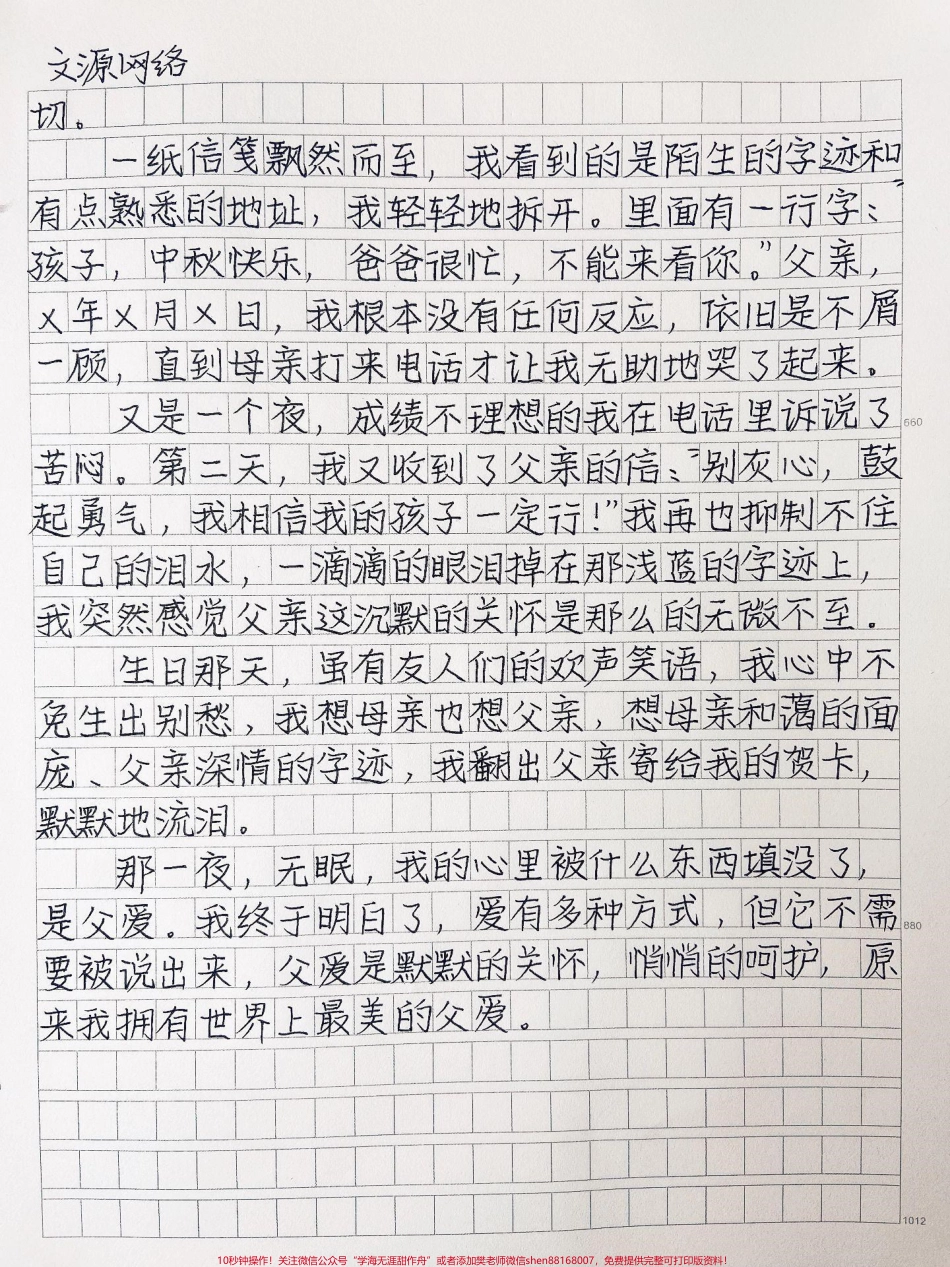 文源网络
切。
一纸信笺飘然而至，我看到的是陌生的字迹和
有点熟悉的地址，我轻轻地拆开。里面有一行字：“
孩子，中秋快乐，爸爸很忙，不能来看你。”父亲，
X年X月X日，我根本没有任何反应，依旧是不屑
一顾，直到母亲打来电话才让我无助地哭了起来。
又是一个夜，成绩不理想的我在电话里诉说了
660
苦闷。第二天，我又收到了父亲的信：“别灰心，鼓
起勇气，我相信我的孩子一定行！”我再也抑制不住
自己的泪水，一滴滴的眼泪掉在那浅蓝的字迹上，
我突然感觉父亲这沉默的关怀是那么的无微不至。
生日那天，虽有友人们的欢声笑语，我心中不
免生出别愁，我想母亲也想父亲，想母亲和蔼的面
庞、父亲深情的字迹，我翻出父亲寄给我的贺卡，
默默地流泪。
那一夜，无眠，我的心里被什么东西填没了，
是父爱。我终于明白了，爱有多种方式，但它不需
880
要被说出来，父爱是默默的关怀，悄悄的呵护，原
来我拥有世界上最美的父爱。
1012
10秒钟操作！关注微信公众号“学海无涯甜作舟”或者添加樊老师微信shen88168007，免费提供完整可打印版资料！